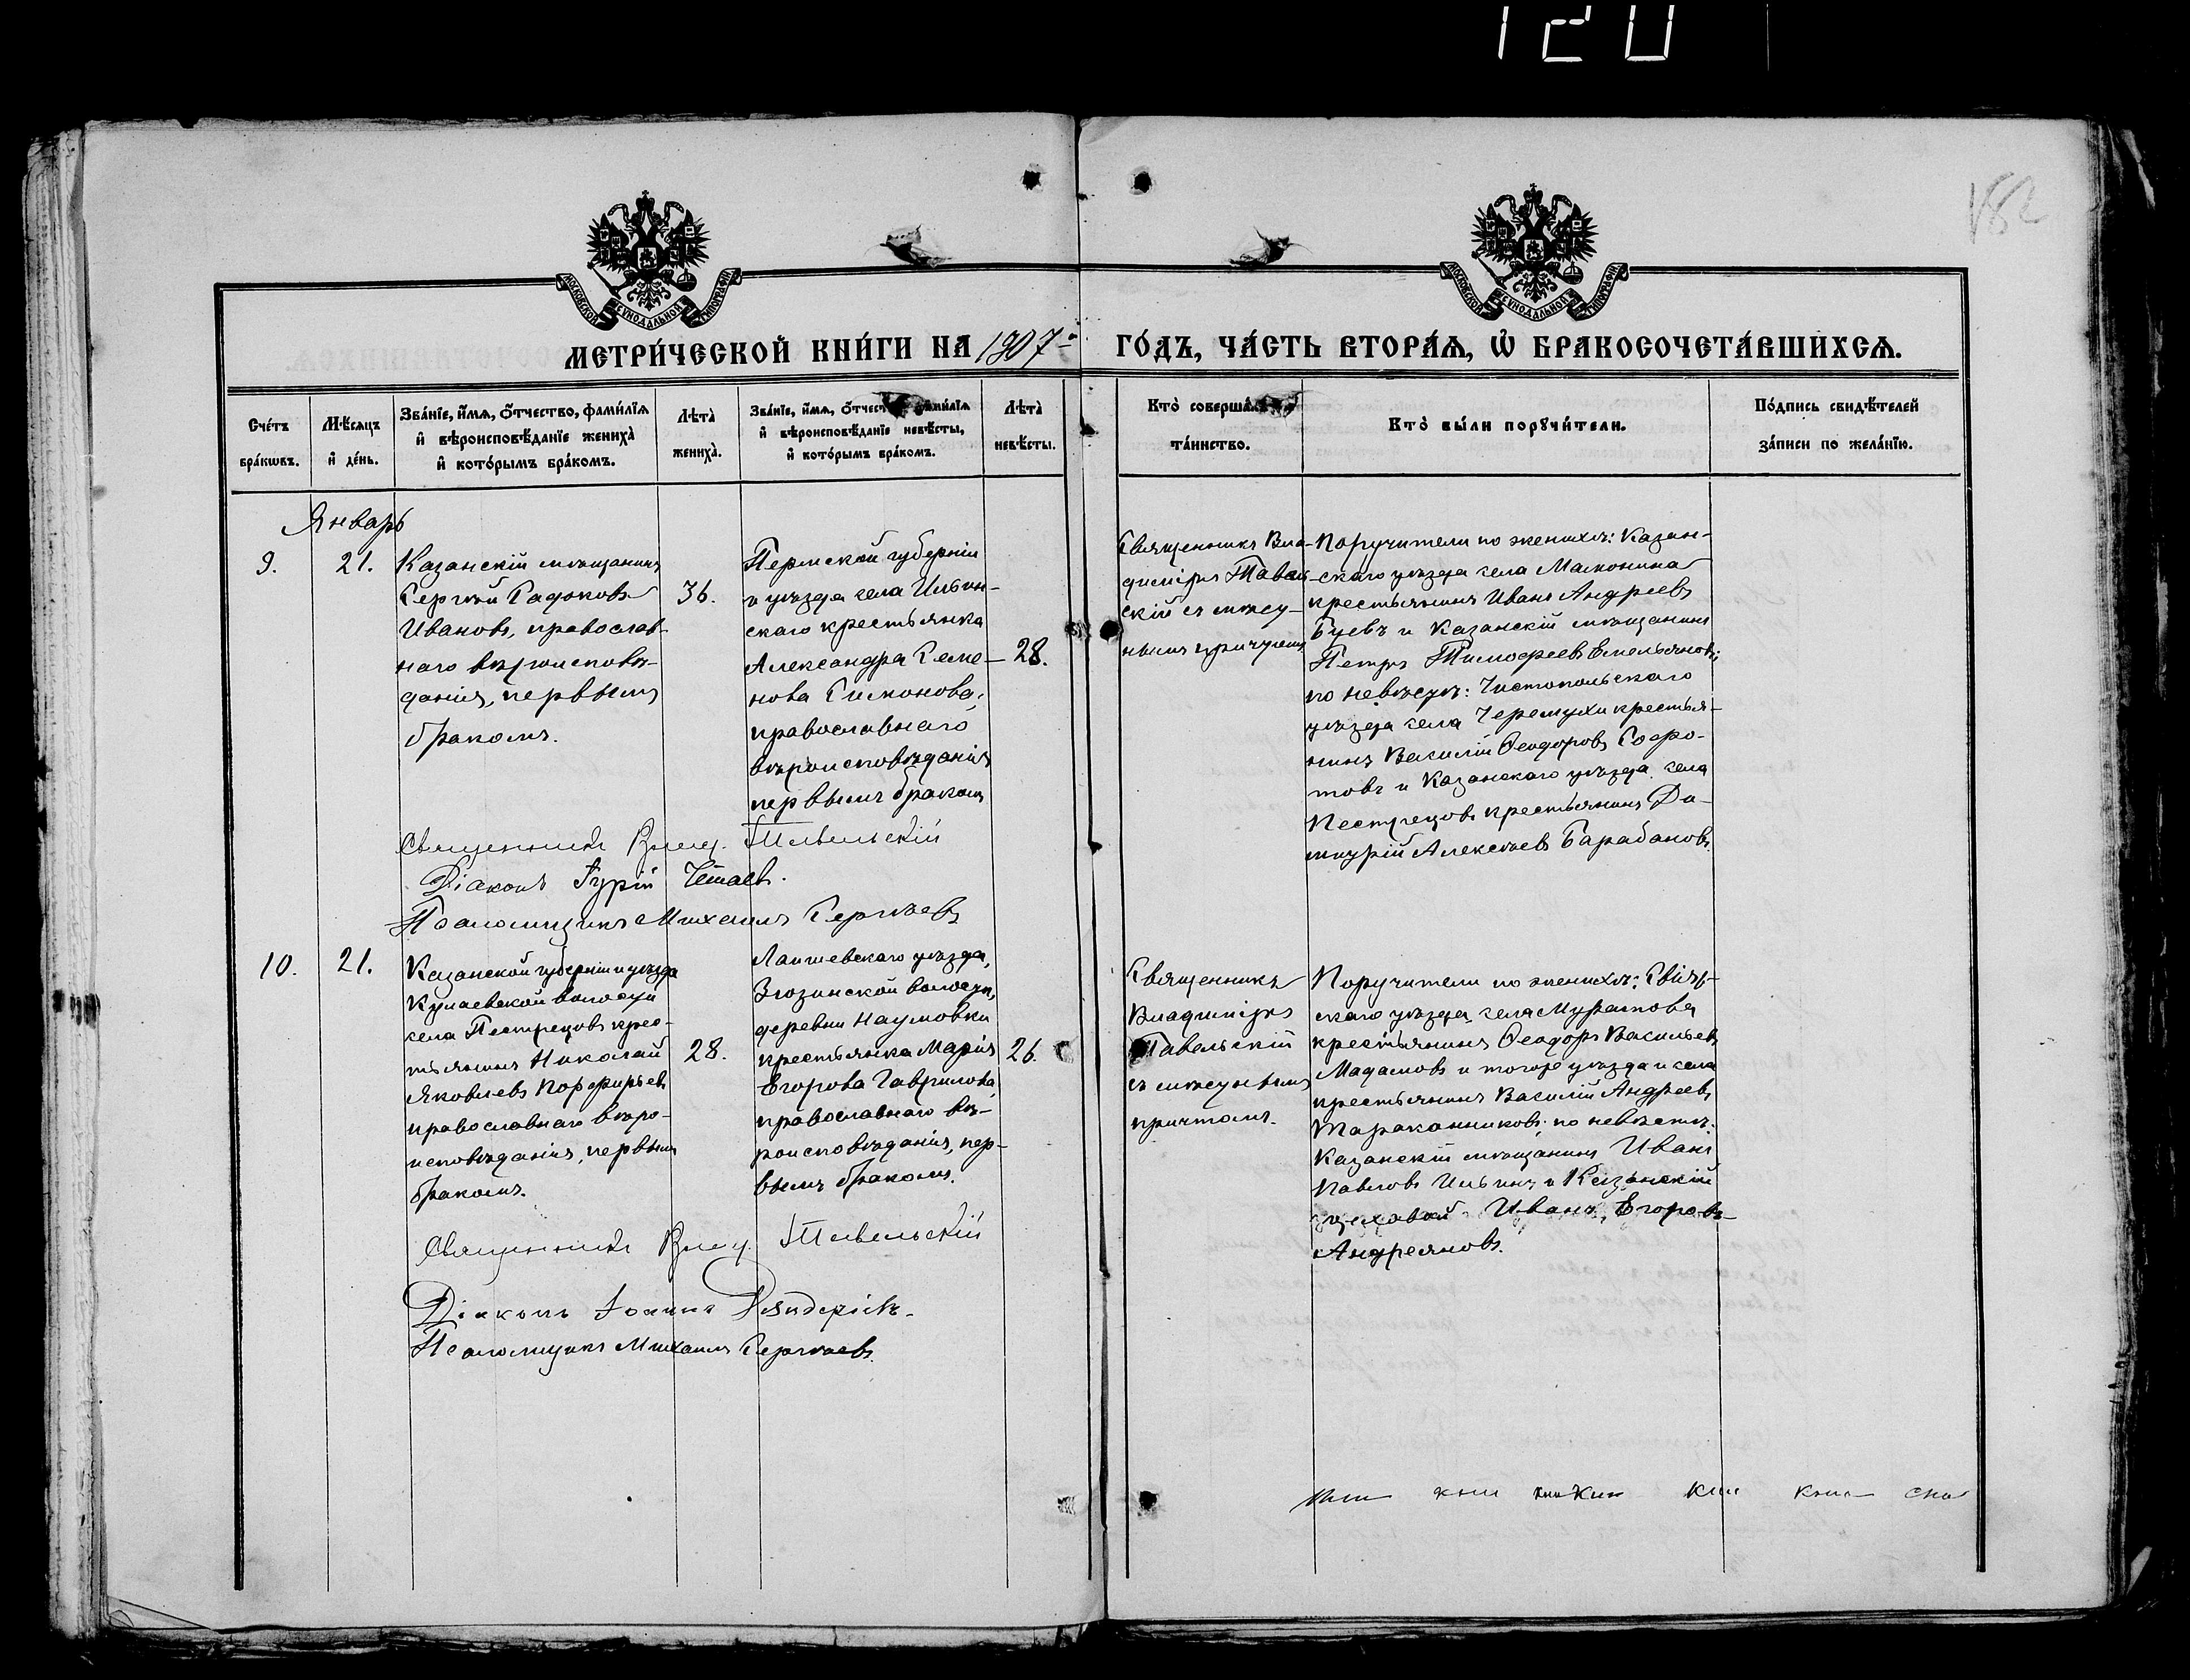 120
182
МОСКОВСКОЙ СѴНОДАЛЬНОЙ ТИПОГРАФІИ
МОСКОВСКОЙ СѴНОДАЛЬНОЙ ТИПОГРАФІИ
МЕТРИ́ЧЕСКОЙ КНИ́ГИ НА 1907 ГО́ДЪ, ЧА́СТЬ ВТОРА́Ѧ, Ѡ҆ БРАКОСОЧЕТА́ВШИХСѦ.
Сче́тъ бра́кωвъ.
Мѣ́сяцъ и҆ де́нь.
Зва́нїе, и҆́мѧ, ѻ҆́тчество, фами́лїѧ
и҆ вѣроисповѣ́данїе жениха̀
и҆ кото́рымъ бра́комъ.
Лѣта̀ жениха̀.
Зва́нїе, и҆́мѧ, ѻ҆́тчест
и҆ вѣроисповѣ́данїе невѣ́сты,
и҆ кото́рымъ бра́комъ.
Лѣта̀ невѣ́сты.
Кто̀ соверша́
та́инство.
Кто̀ бы́ли порꙋчи́тели.
По́дпись свидѣ́телей
за́писи по жела́нїю.
Январь
9.
21.
Казанскій мѣщанинъ
Сергѣй Садоковъ
Ивановъ, православ-
наго вѣроисповѣ-
данія, первымъ
бракомъ.
36.
Пермской губерніи
и уѣзда села Ильин-
скаго крестьянка
Александра Семе-
нова Симонова,
православнаго
вѣроисповѣданія
первымъ бракомъ
28.
Священникъ Вла-
диміръ
скій съ мѣст-
нымъ причтомъ
Поручители по женихѣ: Казан-
скаго уѣзда села
крестьянинъ Иванъ Андреевъ
и Казанскій мѣщанинъ
Петръ Тимофеевъ Емельяновъ;
по невѣстѣ: Чистопольскаго
уѣзда села Черемухи крестья-
нинъ Василій Ѳеодоровъ Софро-
товъ и Казанскаго уѣзда села
Пестрецовъ крестьянинъ Ди-
митрій Алексѣевъ Барабановъ.
Священникъ Влад.
Діаконъ Гурій
Псаломщикъ Михаилъ Сергѣевъ
10.
21.
Казанской губерніи и уѣзда
Кулаевской волости
села Пестрецовъ крес-
тьянинъ Николай
Яковлевъ Порфирьевъ
православнаго вѣро-
исповѣданія, первымъ
бракомъ.
28.
Лаишевскаго уѣзда,
Зюзинской волости,
деревни Наумовки
крестьянка Марія
Егорова Гаврилова
православнаго вѣ-
роисповѣданія, пер-
вымъ бракомъ.
26.
Священникъ
Владиміръ
съ мѣстнымъ
причтомъ.
Поручители по женихѣ: Свіяж-
скаго уѣзда села Муратова
крестьянинъ Ѳеодоръ Васильевъ
Мадамовъ и того же уѣзда и села
крестьянинъ Василій Андреевъ
Тараканниковъ; по невѣстѣ:
Казанскій мѣщанинъ Иванъ
Павловъ Ильинъ и Казанскій
цеховой Иванъ Егоровъ
Андреяновъ.
Священникъ Влад.
Діаконъ Іоаннъ
Псаломщикъ Михаилъ Сергѣевъ.